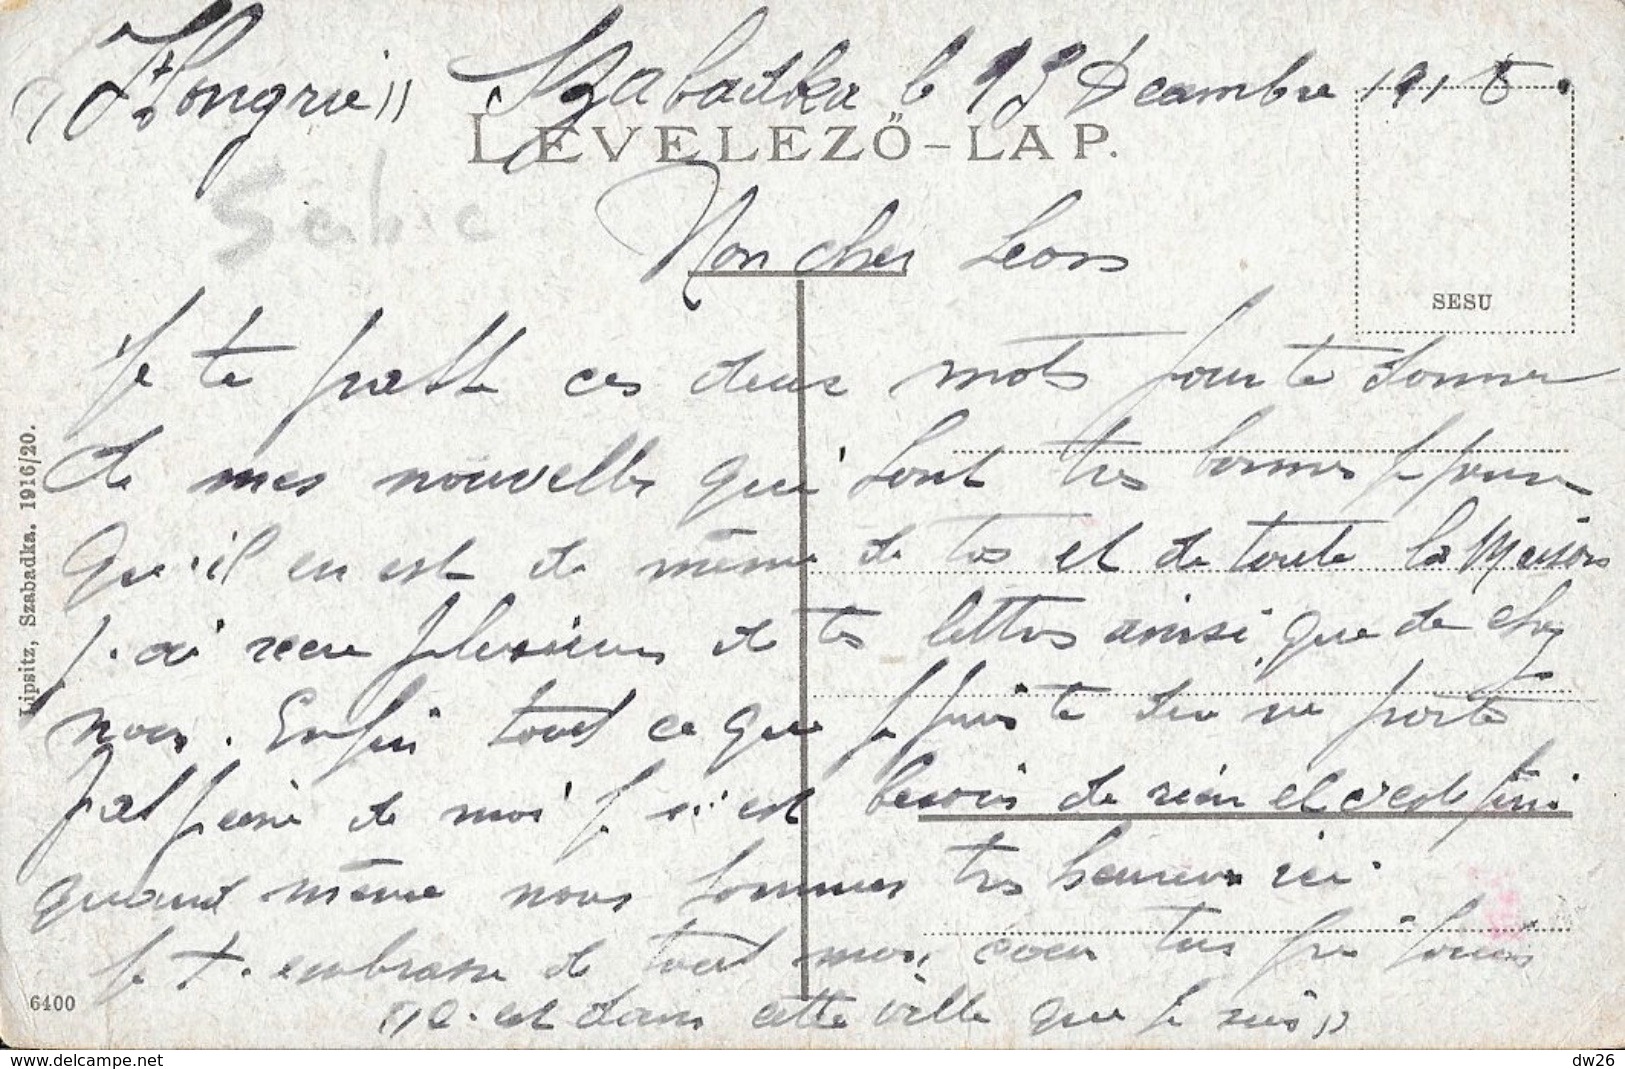 (Hongrie)) Szabadka le 13 Décembre 1918.
LEVELEZŐ-LAP.
Serbie
Mon cher Leon
SESU
Je te ces deux mots pour te donner
de mes nouvelles qui sont tres bonnes je pense
Qu'il en est de même de toi et de toute la Maison
J'ai recu plusieurs de tes lettres ainsi que de chez
nous. Enfin tout ce que je puis te dire ne portes
pas peine de moi je n'est besoin de rien et c'est fini
quand même nous sommes tres heureux ici
Je t'embrasse de tout mon coeur ton
((C'est dans cette ville que je suis))
Lipsitz, Szabadka. 1916/20.
6400
dw26